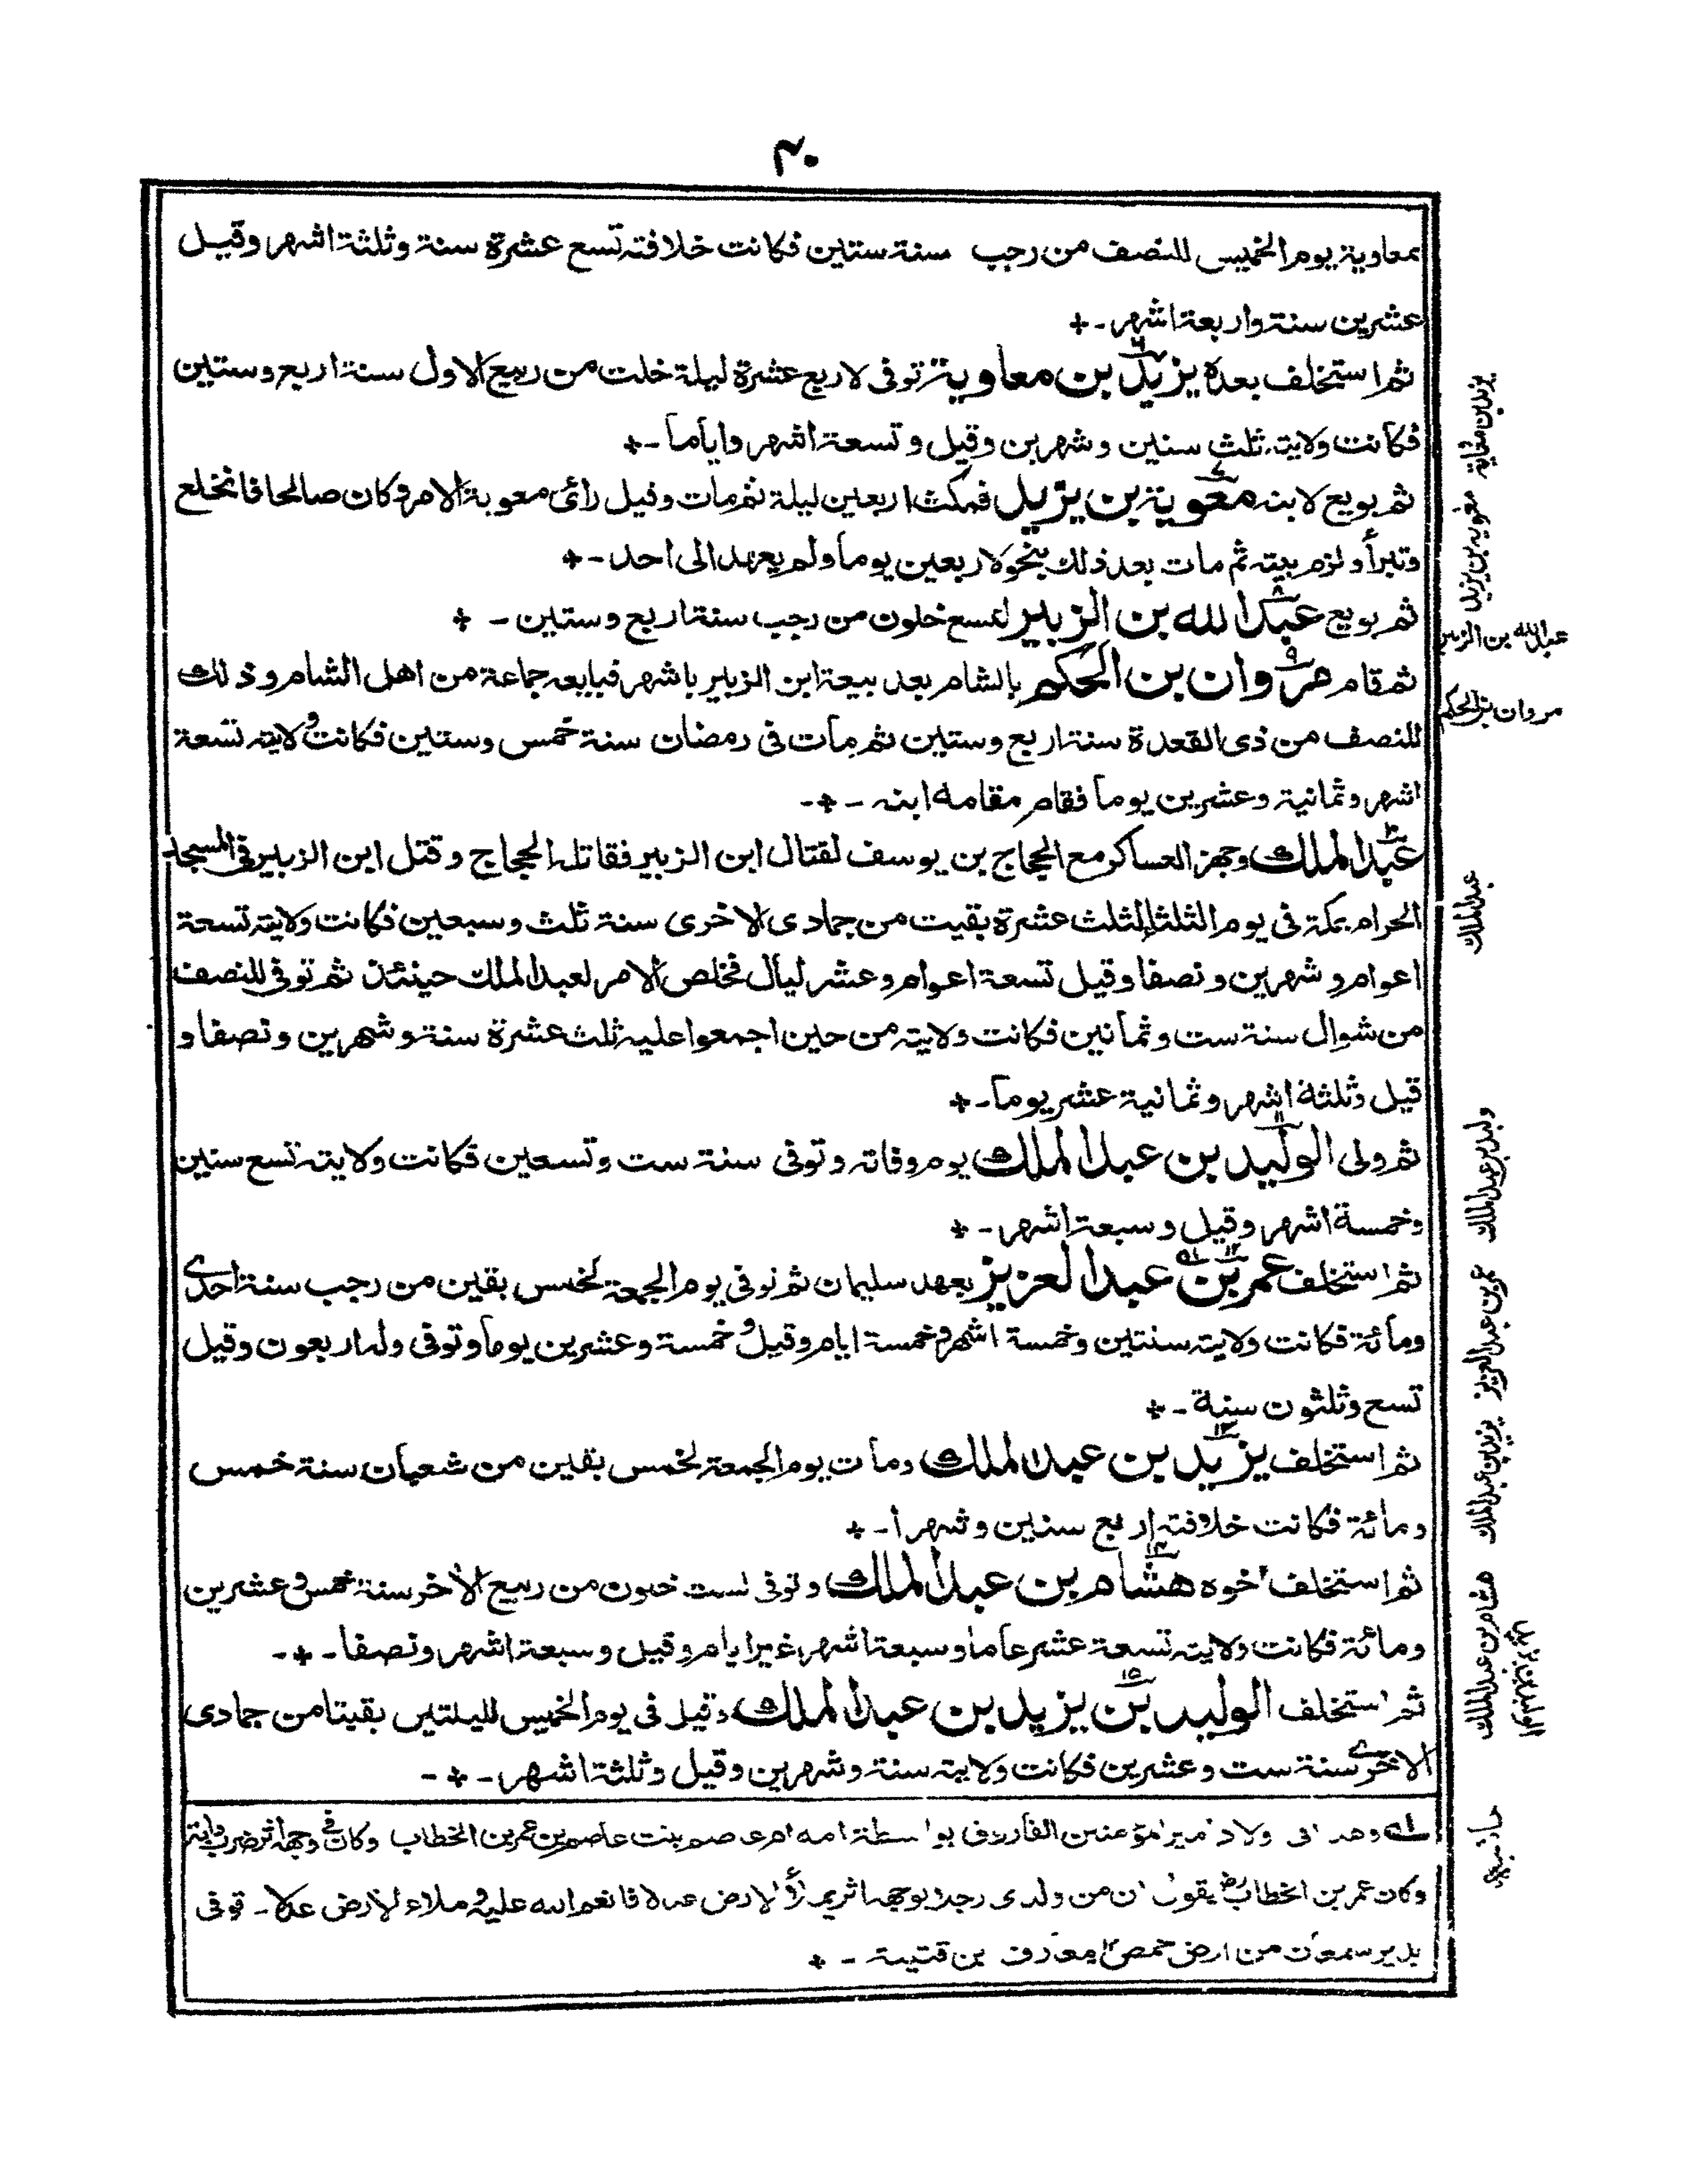 ۳۰
بمعاوية يوم الخميس للنصف من رجب سنة ستين فكانت خلافته تسع عشرة سنة وثلثة اشهر وقيل
عشرين سنة واربعة اشهر ـ+
ثم استخلف بعده يزيد بن معاوية توفى لاربع عشرة ليلة خلت من ربيع الاول سنة اربع وستين
فكانت ولايته ثلث سنين وشهرين وقيل وتسعة اشهر واياما ـ+
ثم بويع لابنه معوية بن يزيد فمكث اربعين ليلة ثم مات وقيل رأى معوية الامر وكان صالحا فانخلع
وتبرأ ولزم بيته ثم مات بعد ذلك بنحو لاربعين يوما ولم يعهد الى احد ـ+
ثم بويع عبد الله بن الزبير لتسع خلون من رجب سنة اربع وستين ـ +
ثم قام مروان بن الحكم بالشام بعد بيعة ابن الزبير باشهر فبايعه جماعة من اهل الشام وذلك
للنصف من ذى القعدة سنة اربع وستين ثم مات فى رمضان سنة خمس وستين فكانت ولايته تسعة
اشهر وثمانية وعشرين يوما فقام مقامه ابنه ـ+ـ
عبد الملك وجهز العساكر مع الحجاج بن يوسف لقتال ابن الزبير فقاتله الحجاج وقتل ابن الزبير فى المسجد
الحرام بمكة فى يوم الثلثا لثلث عشرة بقيت من جمادى الاخرى سنة ثلث وسبعين فكانت ولايته تسعة
اعوام وشهرين ونصفا وقيل تسعة اعوام وعشر ليال فخلص الامر لعبد الملك حينئذ ثم توفى للنصف
من شوال سنة ست وثمانين فكانت ولايته من حين اجمعوا عليه ثلث عشرة سنة وشهرين ونصفا و
قيل وثلثة اشهر وثمانية عشر يوما ـ+
ثم ولى الوليد بن عبد الملك يوم وفاته وتوفى سنة ست وتسعين فكانت ولايته تسع سنين
وخمسة اشهر وقيل وسبعة اشهر ـ+
ثم استخلف عمر بن عبد العزيز بعهد سليمان ثم توفى يوم الجمعة لخمس بقين من رجب سنة احدى
ومائة فكانت ولايته سنتين وخمسة اشهر وخمسة ايام وقيل وخمسة وعشرين يوما وتوفى وله اربعون وقيل
تسع وثلثون سنة ـ+
ثم استخلف يزيد بن عبد الملك ومات يوم الجمعة لخمس بقين من شعبان سنة خمس
ومائة فكانت خلافته اربع سنين وشهرا ـ+
ثم استخلف اخوه هشام بن عبد الملك وتوفى لست خلون من ربيع الاخر سنة خمس وعشرين
ومائة فكانت ولايته تسعة عشر عاما وسبعة اشهر غير ايام وقيل وسبعة اشهر ونصفا ـ+ـ
ثم استخلف الوليد بن يزيد بن عبد الملك وقتل فى يوم الخميس لليلتين بقيتا من جمادى
الاخرى سنة ست وعشرين فكانت ولايته سنة وشهرين وقيل وثلثة اشهر ـ+ـ
امير المؤمنين الفاروق بواسطة امه ام عاصم بنت عاصم بن عمر بن الخطاب وكان فى وجهه اثر ضرب دابة
وكان عمر بن الخطاب يقول ان من ولدى رجلا بوجهه اثر يملأ الارض عدلا فانعم الله عليه وملاء الارض عدلا ـ توفى
بدير سمعان من ارض حمص معارف بن قتيبة ـ +
يزيد بن معاوية
معوية بن يزيد
عبد الله بن الزبير
مروان بن الحكم
عبد الملك
وليد بن عبد الملك
عمر بن عبد العزيز
يزيد بن عبد الملك
هشام بن عبد الملك